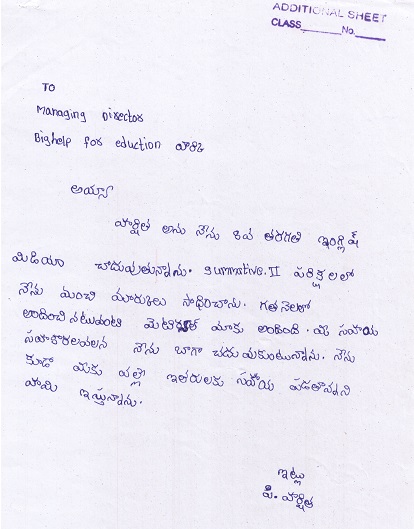 ADDITIONAL SHEET
CLASS______No.____
TO
Managing Director
Bighelp for eduction వారికి
అయ్యా
హర్షిత అను నేను 8వ తరగతి ఇంగ్లిష్
మిడియా చాదువుతున్నాను. summative.II పరిక్షలలో
నేను మంచి మార్కులు సాధించాను. గతనెలలో
అందించినటువంటి మెటిరియల్ మాకు అందింది. మీ సహాయ
సహకారాలవలన నేను బాగా చదువుకుంటున్నాను. నేను
కూడా మీకు వల్లె ఇతరులకు సహాయ పడతానని
హామి ఇస్తున్నాను.
ఇట్లు
పి. హర్షిత